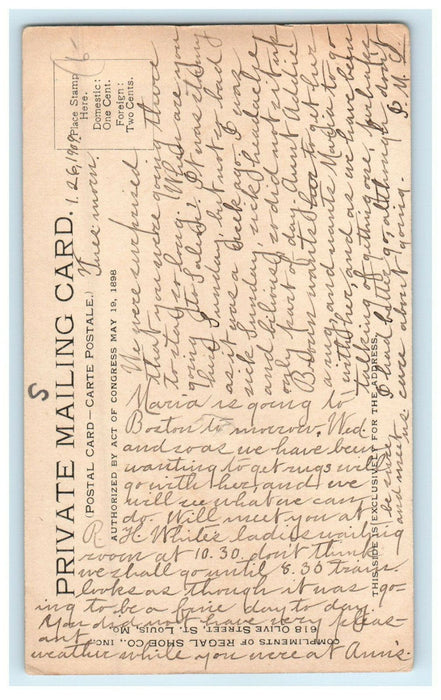 PRIVATE MAILING CARD.
(POSTAL CARD—CARTE POSTALE.)
AUTHORIZED BY ACT OF CONGRESS MAY 19, 1898
Place Stamp
Here.
Domestic:
One Cent.
Foreign:
Two Cents.
THIS SIDE IS EXCLUSIVELY FOR THE ADDRESS.
COMPLIMENTS OF REGAL SHOE CO., INC.,
618 OLIVE STREET, ST. LOUIS, MO.
S
1. 26, 1909.
Tues morn.
We were surprised
that you were going there
to stay so long. What are you
going to Salem? I was it Sun
but not so bad
as it was a week ago. I was
sick Sunday, sick headache
and bilious, so did not sit up
only part of day. Aunt Addie
Brown wants to get her
a rug and wants Maria to go
with her, and as we have been
talking of getting one,
I had better go, although
about going.
Maria is going to
Boston to morrow, Wed.
and so as we have been
wanting to get rugs we'll
go with her, and we
will see what we can
do. Will meet you at
R. H. White's ladies waiting
room at 10.30. don't think
we shall go until 8.30 train.
looks as though it was go-
ing to be a fine day to day.
You did not have very pleas-
ant
weather while you were at Ann's.
be sure
and meet us